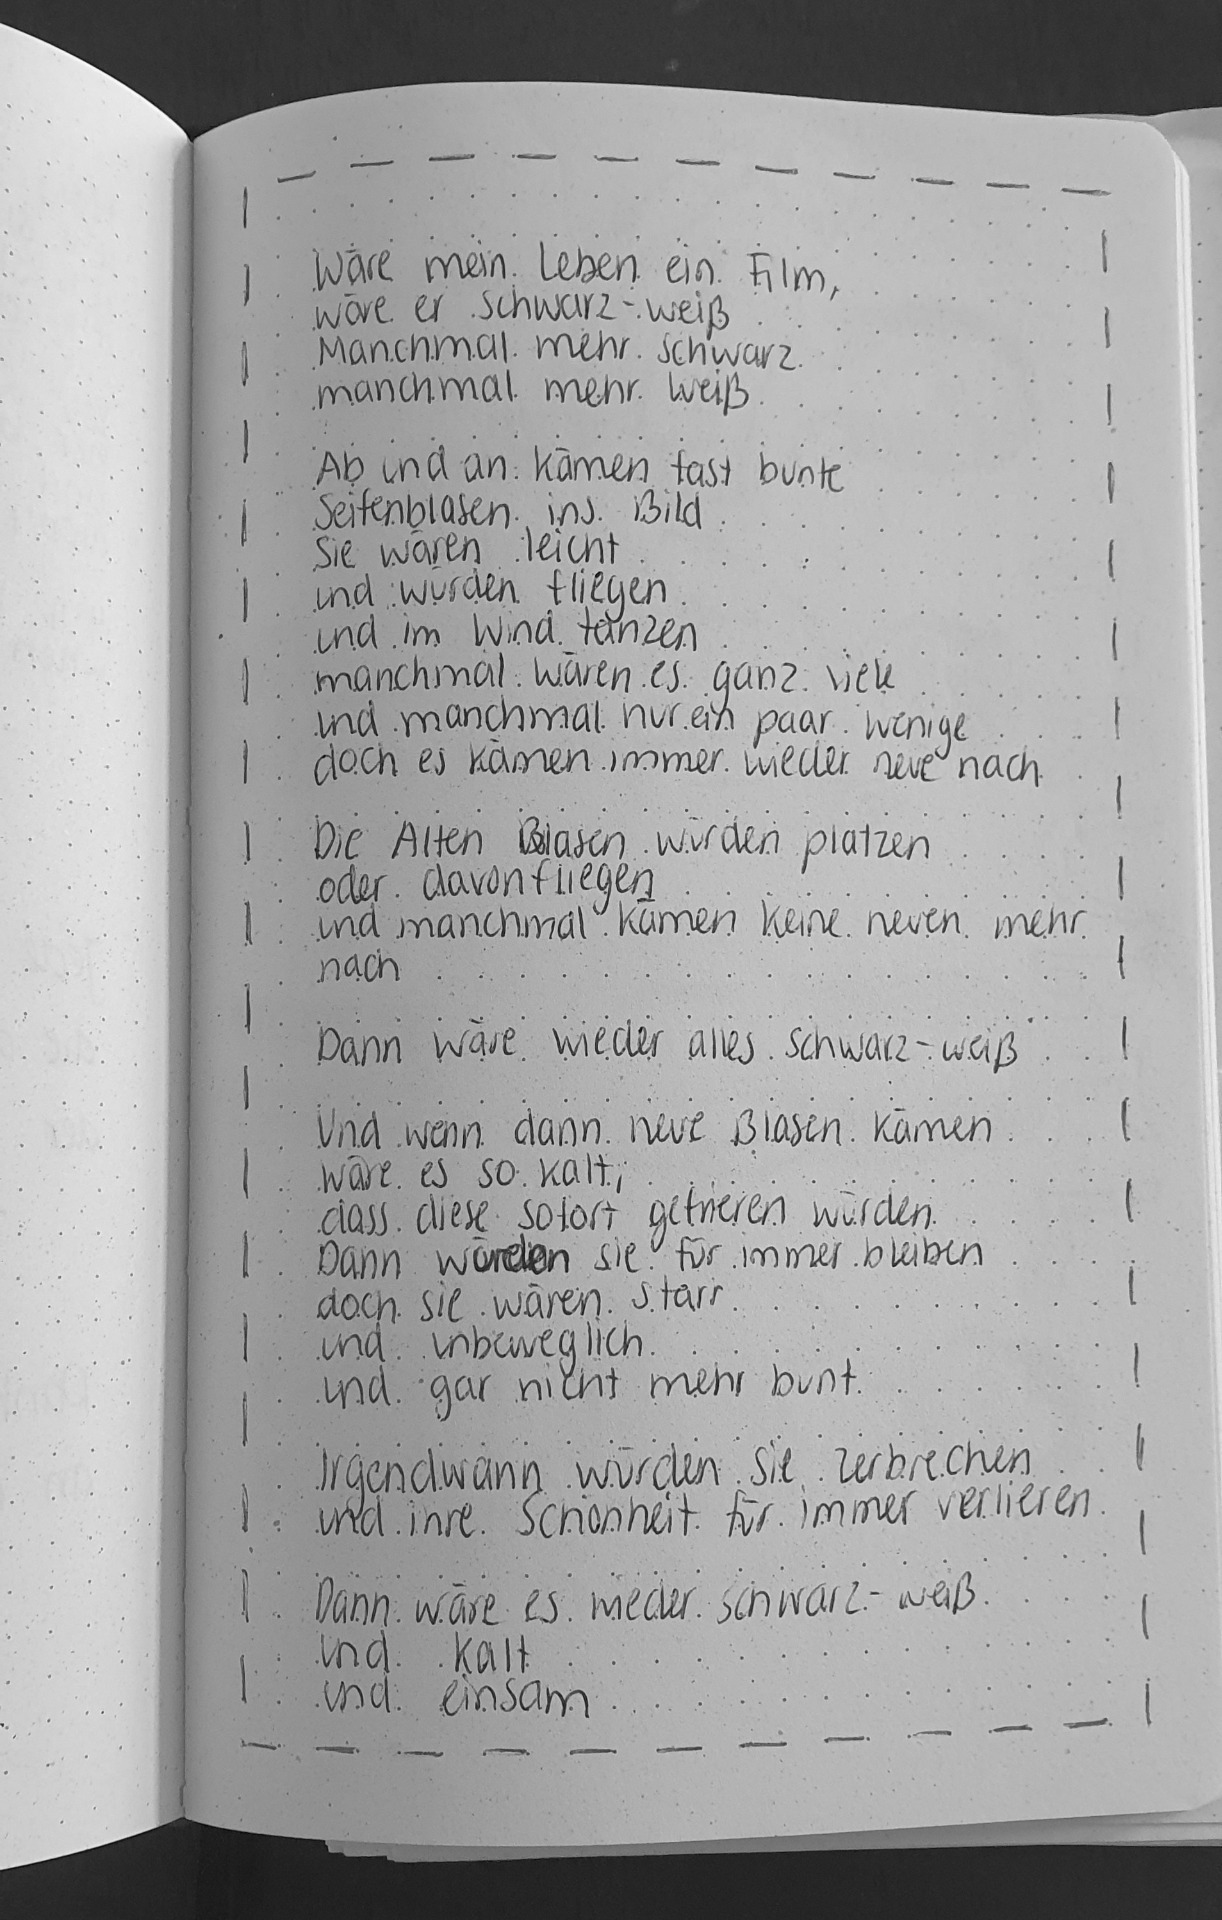 Wäre mein Leben ein Film,
wäre er schwarz-weiß
Manchmal mehr schwarz
manchmal mehr weiß
Ab und an kämen fast bunte
Seifenblasen ins Bild
Sie wären leicht
und würden fliegen
und im Wind tanzen
manchmal wären es ganz viele
und manchmal nur ein paar wenige
doch es kämen immer wieder neue nach
Die Alten Blasen würden platzen
oder davonfliegen
und manchmal kämen keine neuen mehr
nach
Dann wäre wieder alles schwarz-weiß
Und wenn dann neue Blasen kämen
wäre es so kalt,
dass diese sofort gefrieren würden
Dann würden sie für immer bleiben
doch sie wären starr
und unbeweglich
und gar nicht mehr bunt
Irgendwann würden sie zerbrechen
und ihre Schönheit für immer verlieren
Dann wäre es wieder schwarz-weiß
und kalt
und einsam